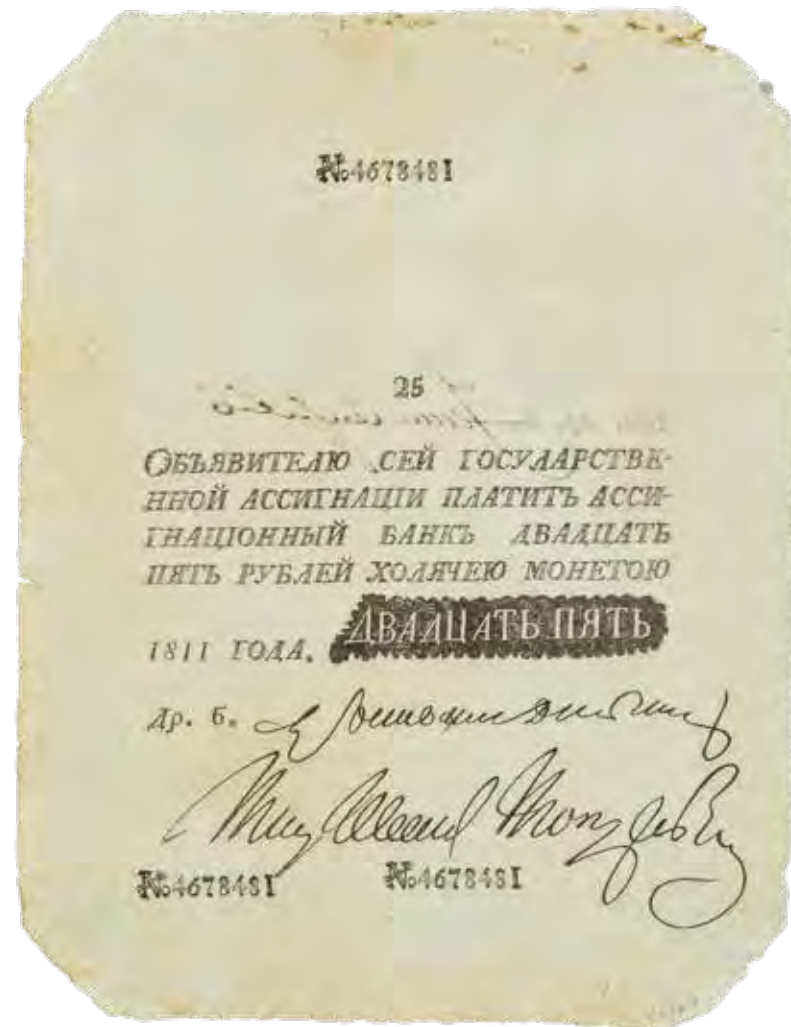 №4678481
25
ОБЪЯВИТЕЛЮ СЕЙ ГОСУДАРСТВЕ-
ННОЙ АССИГНАЦІИ ПЛАТИТЪ АССИ-
ГНАЦІОННЫЙ БАНКЪ ДВАДЦАТЬ
ПЯТЬ РУБЛЕЙ ХОДЯЧЕЮ МОНЕТОЮ
1811 ГОДА. ДВАДЦАТЬ ПЯТЬ
Др. б.
№4678481 №4678481